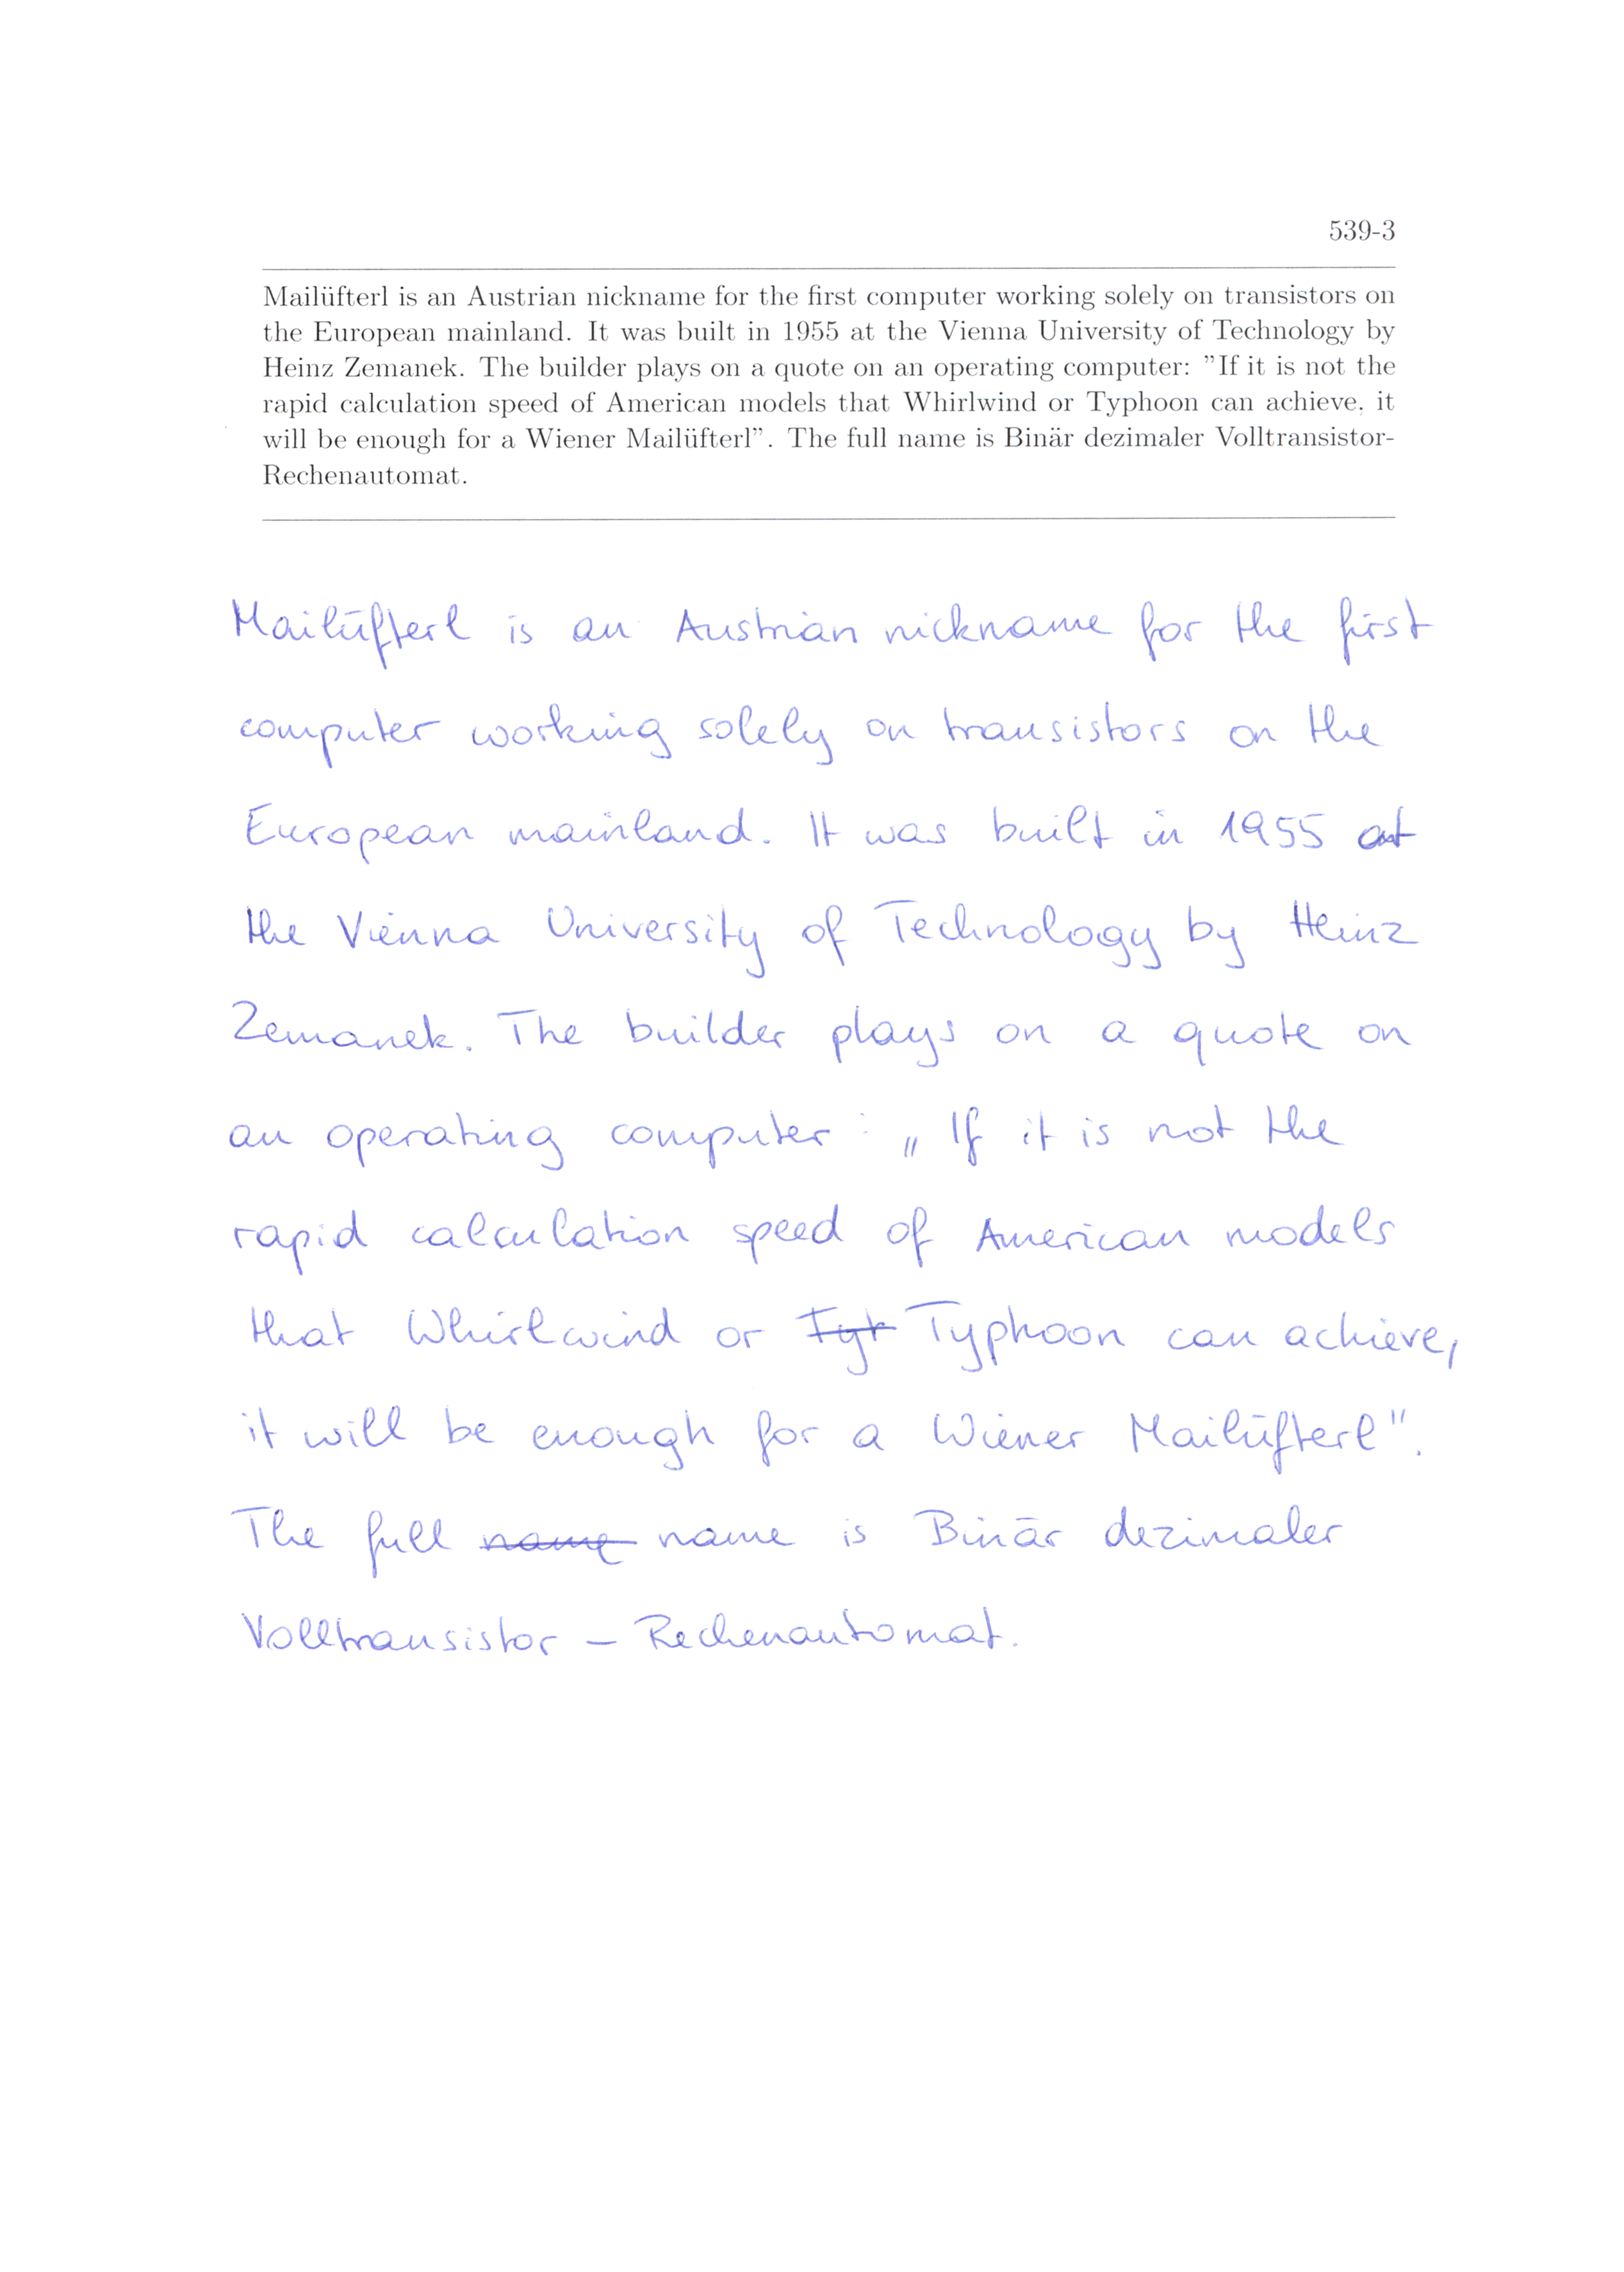 539-3
Mailüfterl is an Austrian nickname for the first computer working solely on transistors on
the European mainland. It was built in 1955 at the Vienna University of Technology by
Heinz Zemanek. The builder plays on a quote on an operating computer: ”If it is not the
rapid calculation speed of American models that Whirlwind or Typhoon can achieve, it
will be enough for a Wiener Mailüfterl”. The full name is Binär dezimaler Volltransistor-
Rechenautomat.
Mailüfterl is an Austrian nickname for the first
computer working solely on transistors on the
European mainland. It was built in 1955 at
the Vienna University of Technology by Heinz
Zemanek. The builder plays on a quote on
an operating computer : „If it is not the
rapid calculation speed of American models
that Whirlwind or Typhoon can achieve,
it will be enough for a Wiener Mailüfterl".
The full name name is Binär dezimaler
Volltransistor - Rechenautomat.